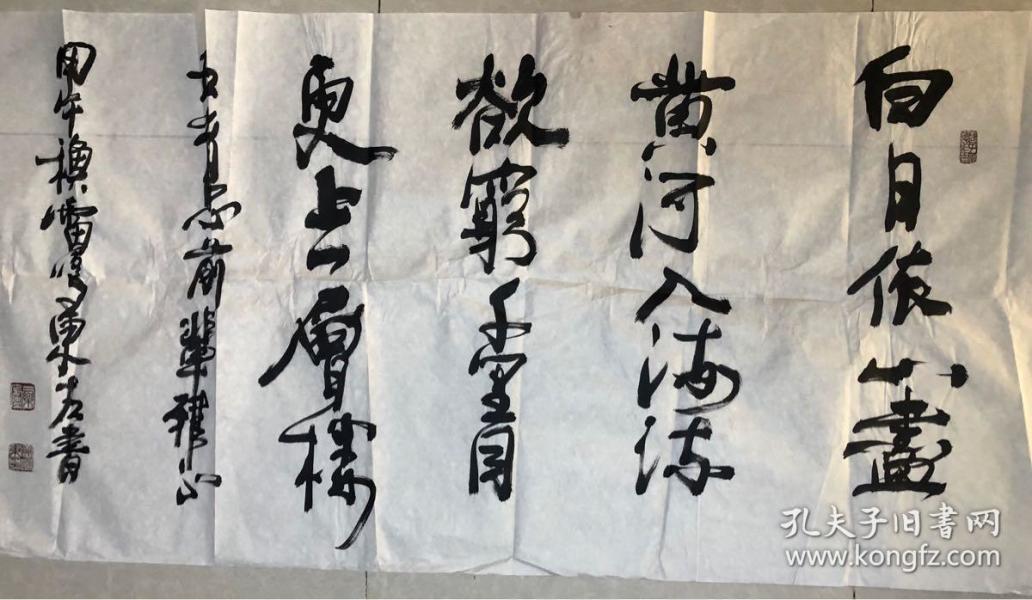 白日依山盡
黄河入海流
欲窮千里目
更上一層樓
前輩雅正
甲午
書
孔夫子旧書网
www.kongfz.com